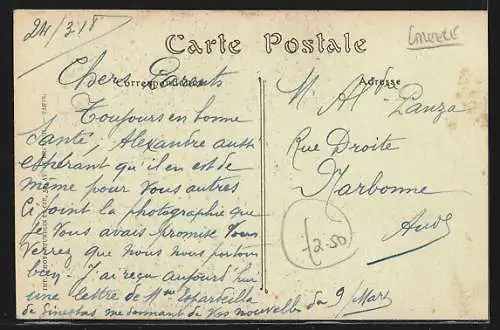 24/3-18
Carte Postale
Correspondance
Adresse
Chers Parents
Toujours en bonne
Santé, Alexandre aussi
espérant qu'il en est de
même pour vous autres
Ci joint la photographie que
je vous avais promise Vous
verrez que nous nous portons
bien. J'ai reçu aujourd'hui
une lettre de Mme
de Ginestas me donnant de vos nouvelles du 9/Mars
M. Panza
Rue Droite
Narbonne
Aude
12-50